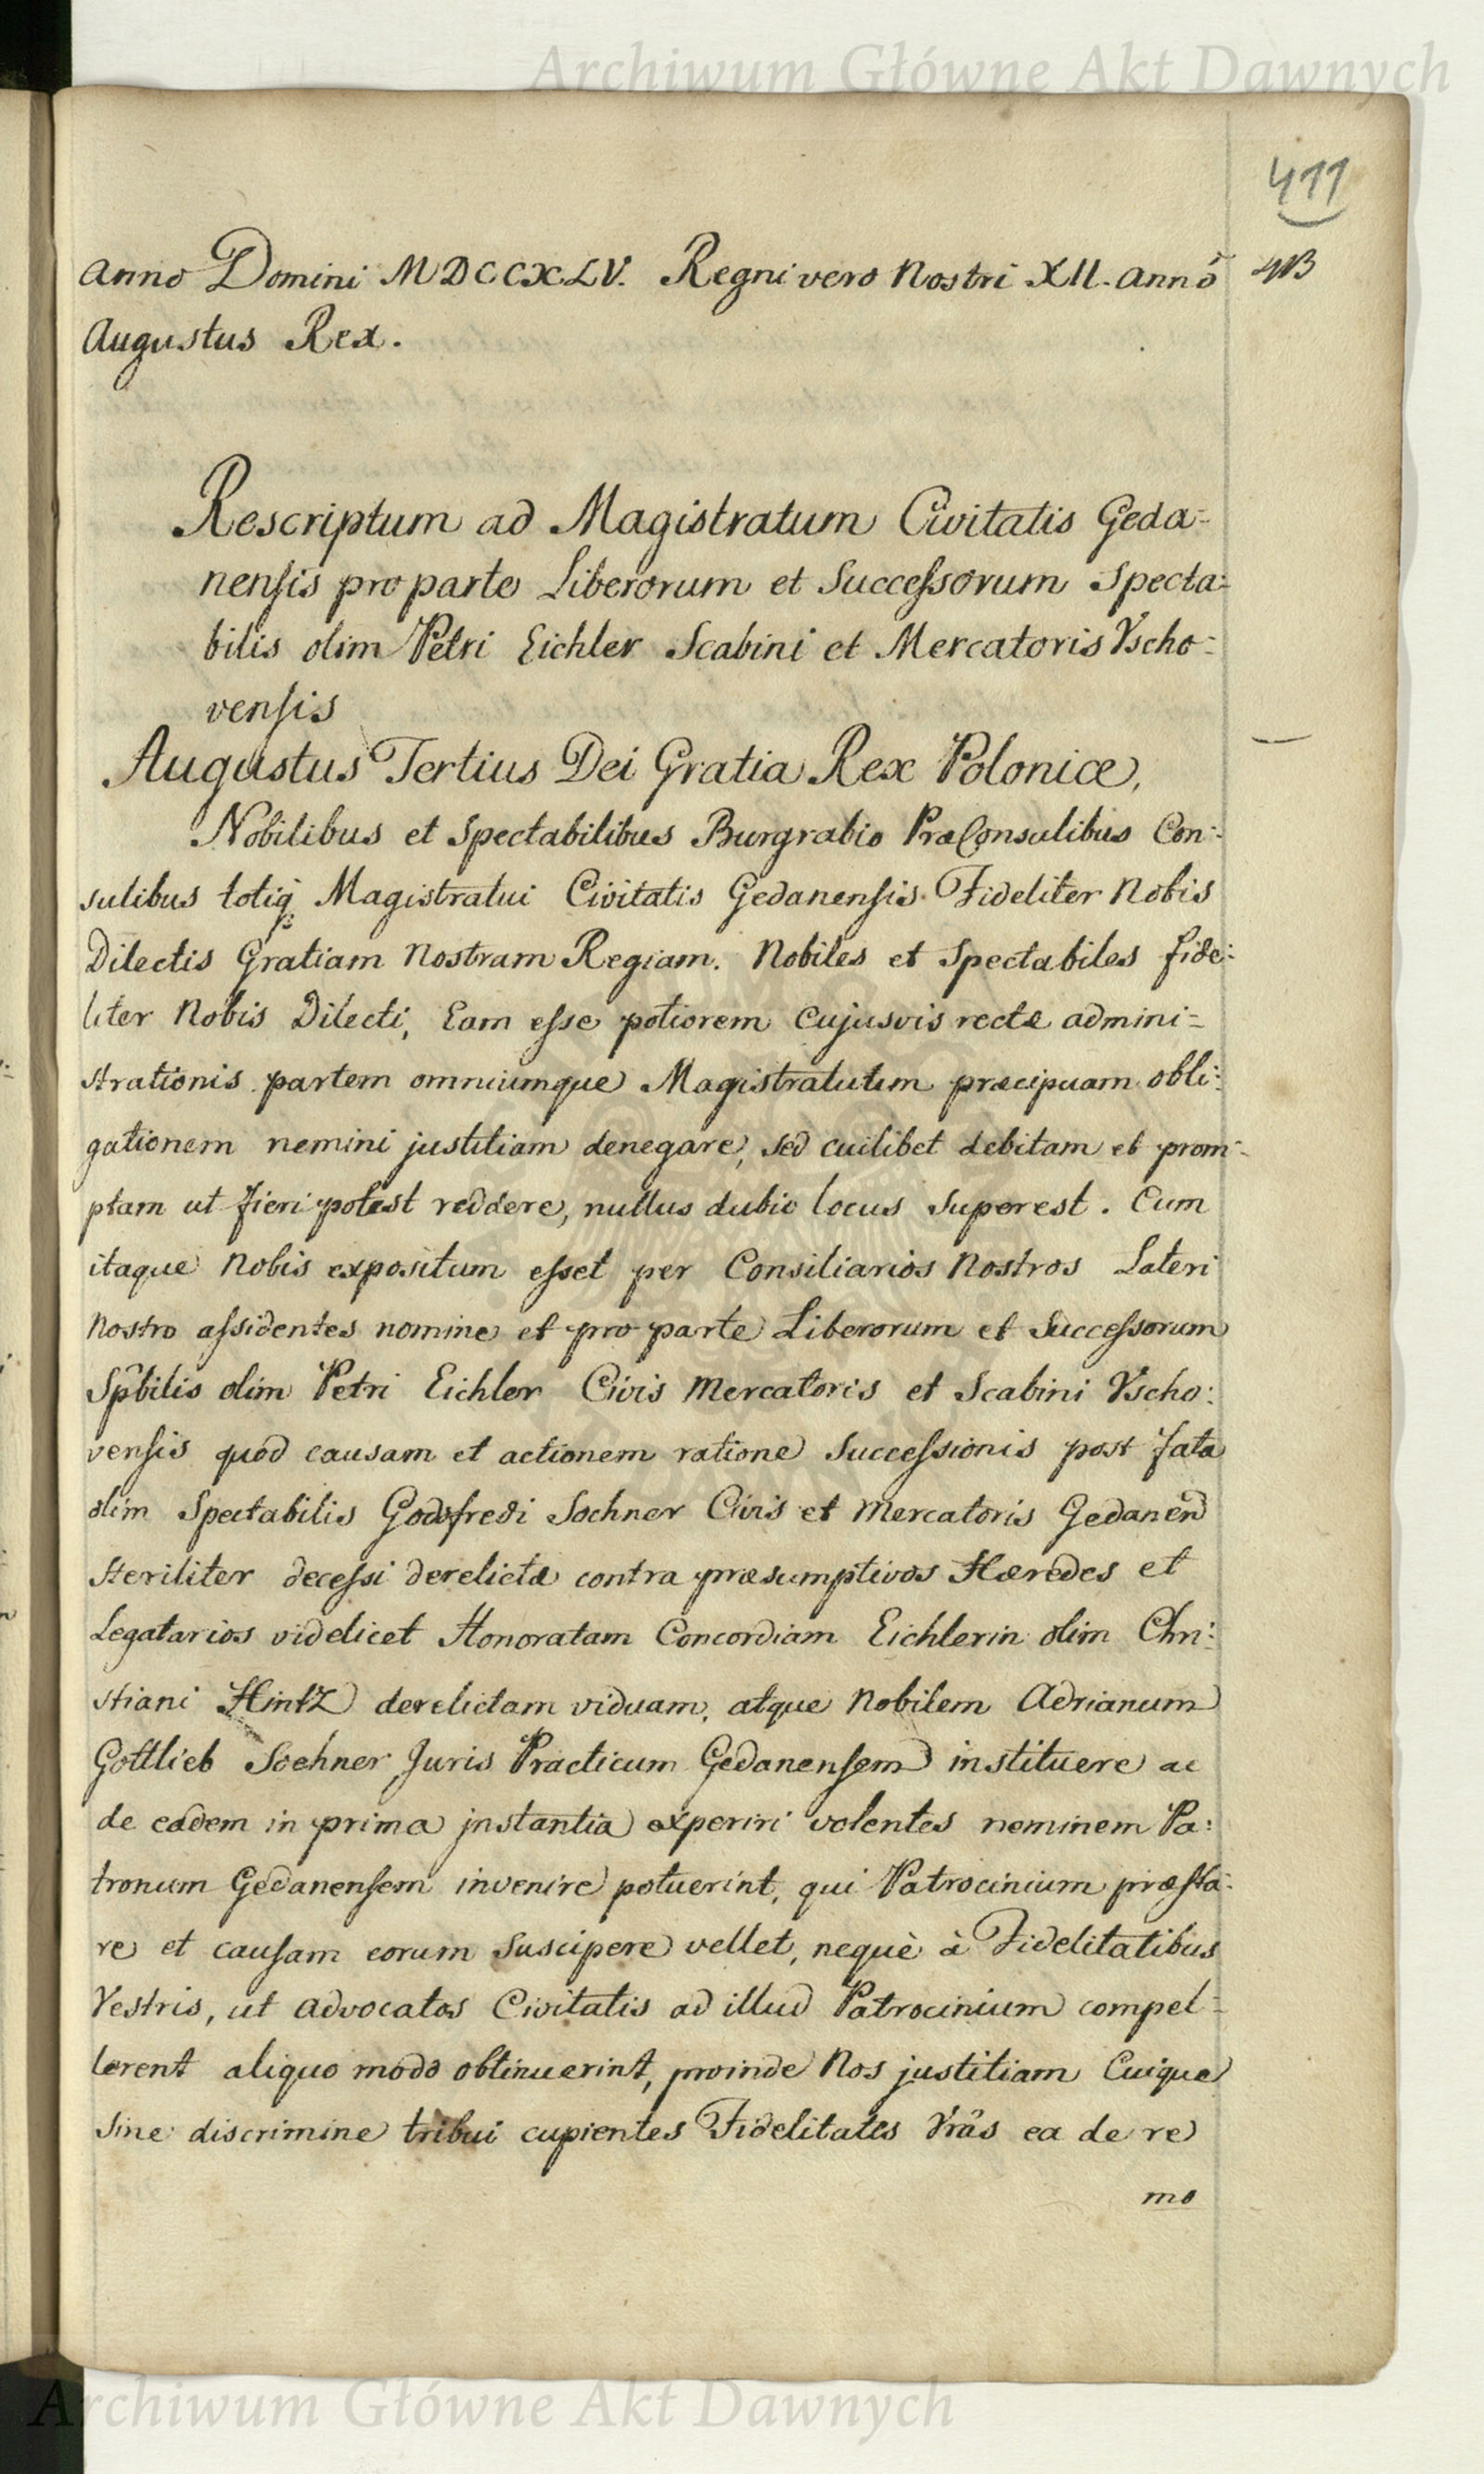 Archiwum Główne Akt Dawnych
411
Anno Domini MDCCXLV. Regni vero Nostri XII. Annõ
413
Augustus Rex.
Rescriptum ad Magistratum Civitatis Geda=
nenſis pro parte Liberorum et Succeſsorum Specta=
bilis olim Petri Eichler Scabini et Mercatoris Vscho=
venſis
Augustus Tertius Dei Gratia Rex Poloniæ,
Nobilibus et Spectabilibus Burgrabio PræConsulibus Con=
sulibus totiq Magistratui Civitatis Gedanenſis Fideliter Nobis
Dilectis Gratiam Nostram Regiam. Nobiles et Spectabiles fide=
liter Nobis Dilecti, Eam eſse potiorem cujusvis rectæ admini=
strationis partem omniumque Magistratuum præcipuam obli=
gationem nemini justitiam denegare, sed cuilibet debitam et prom=
ptam ut fieri potest reddere, nullus dubio locus superest. Cum
itaque Nobis expositum eſset per Consiliarios Nostros Lateri
Nostro aſsidentes nomine et pro parte Liberorum et Succeſsorum
Spbilis olim Petri Eichler Civis Mercatoris et Scabini Vscho=
venſis quod causam et actionem ratione Succeſsionis post fata
olim Spectabilis Godofredi Sochner Civis et Mercatoris Gedanen
steriliter deceſsi derelictæ contra præsumptivos Hæredes et
Legatarios videlicet Honoratam Concordiam Eichlerin olim Chri=
stiani Hintz derelictam viduam, atque Nobilem Adrianum
Gottlieb Soehner Juris Practicum Gedanenſem instituere ac
de eadem in prima jnstantia experiri volentes neminem Pa=
tronum Gedanenſem invenire potuerint, qui Patrocinium præſta=
re et cauſam eorum suscipere vellet, nequè à Fidelitatibus
Vestris, ut advocatos Civitatis ad illud Patrocinium compel=
lerent aliquo modo obtinuerint, proinde Nos justitiam Cuique
sine discrimine tribui cupientes Fidelitates Vrãs ea de re
mo
Archiwum Główne Akt Dawnych